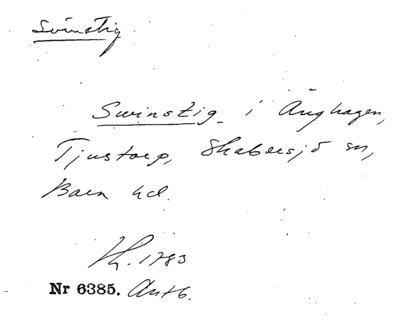 Svinstig
Swinstig i Änghagen,
Tjustorp, Skabersjö sn,
Bara hd.
1783
Nr 6385. Antb.